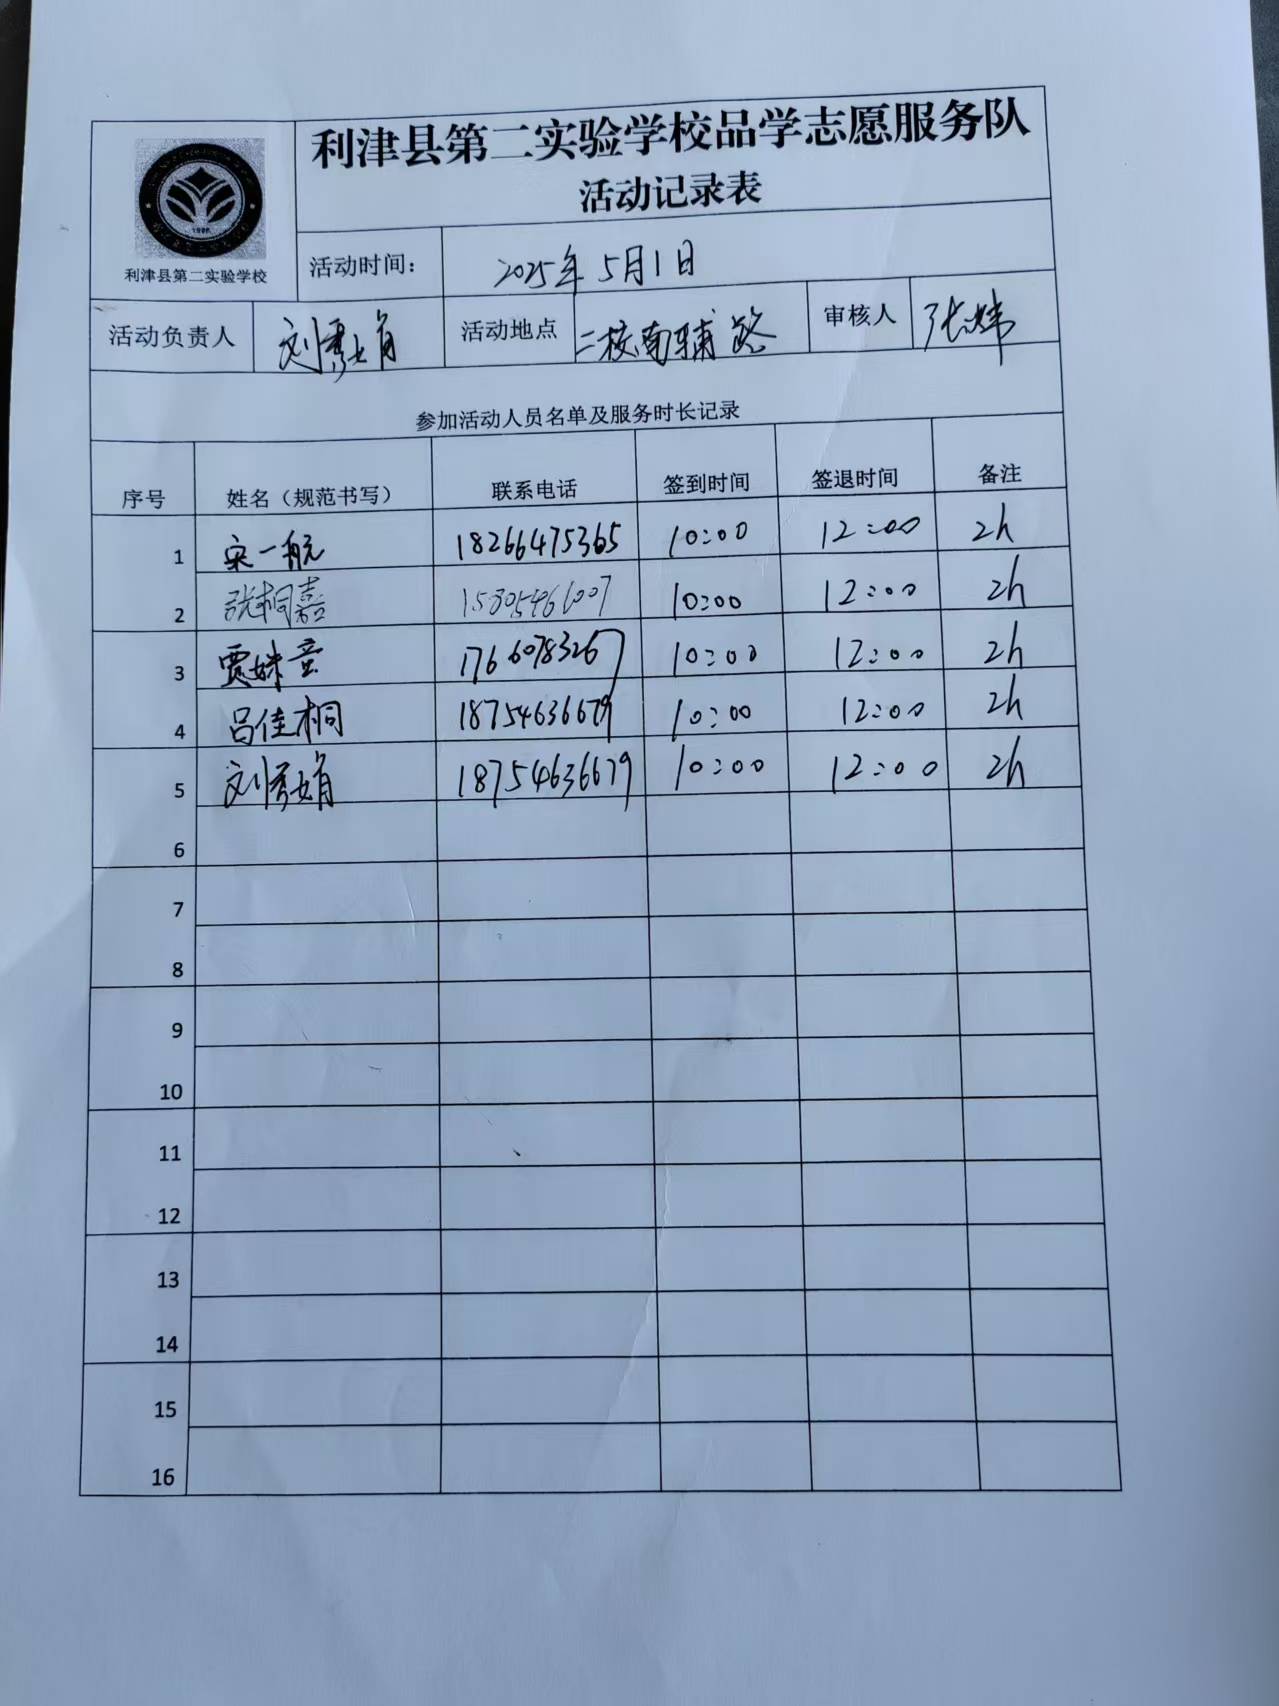 利津县第二实验学校品学志愿服务队
活动记录表
1996
利津县第二实验学校
活动时间： 2025年5月1日
活动负责人 刘秀娟 活动地点 二校南辅路 审核人 张炜
参加活动人员名单及服务时长记录
序号 姓名（规范书写） 联系电话 签到时间 签退时间 备注
1 宋一航 18266475365 10:00 12:00 2h
2 张桐嘉 15805461007 10:00 12:00 2h
3 贾姝童 17660783267 10:00 12:00 2h
4 吕佳桐 18754636679 10:00 12:00 2h
5 刘秀娟 18754636679 10:00 12:00 2h
6
7
8
9
10
11
12
13
14
15
16